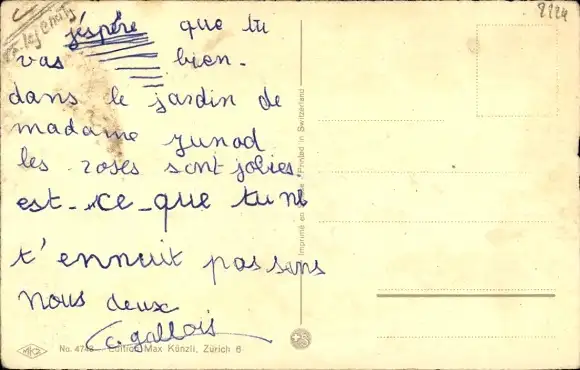 2124
j'éspére que tu
vas bien.
dans le jardin de
madame Junod
les roses sont jolies.
est-ce-que tu ne
t'ennuit pas sans
nous deux
c. gallois
No. 4743 Edition Max Künzli, Zürich 6
Imprimé en Suisse Printed in Switzerland